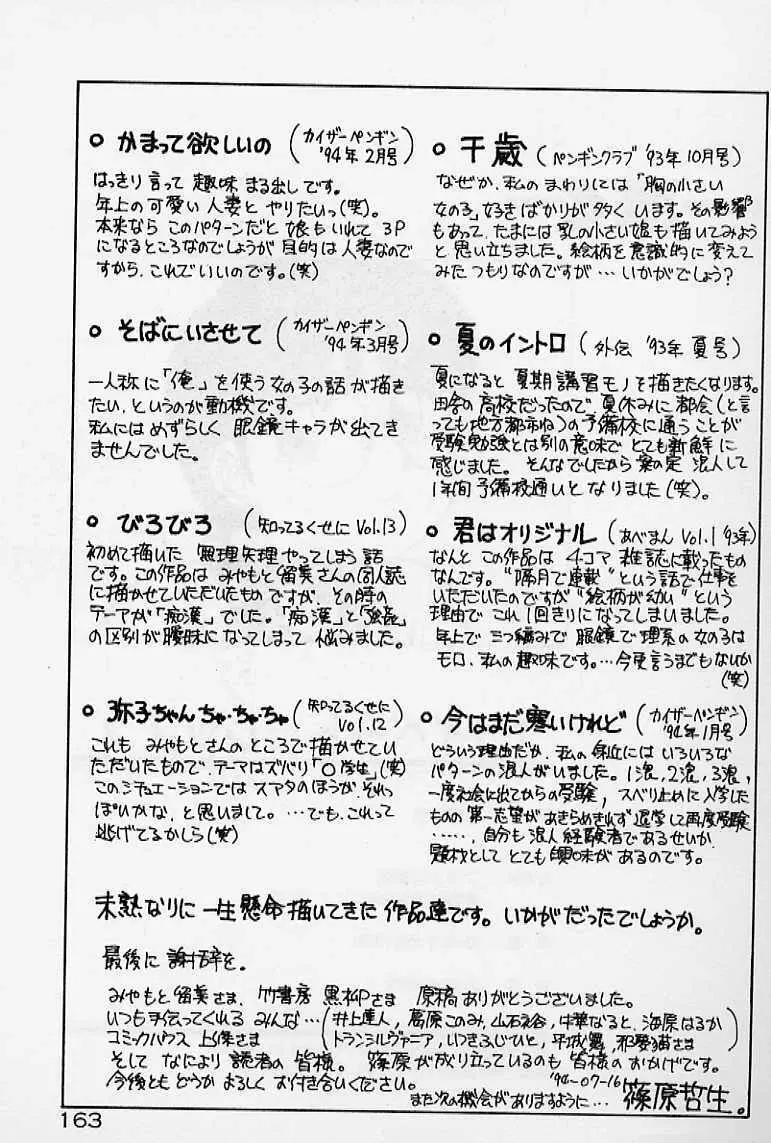 ○ かまって欲しいの (カイザーペンギン '94年2月号)
はっきり言って 趣味 まる出しです。
年上の可愛い人妻と やりたいっ(笑)。
本来なら このパターンだと 娘もいれて 3P
になるところなのでしょうが 目的は人妻なので
すから、これでいいのです。(笑)
○ そばにいさせて (カイザーペンギン '94年3月号)
一人称に「俺」を使う女の子の話が描き
たい、というのが動機です。
私にはめずらしく 眼鏡キャラが出てき
ませんでした。
○ びろびろ (知ってるくせに Vol.13)
初めて描いた 無理矢理やってしまう話
です。この作品は みやもと留美さんの同人誌
に描かせていただいたものですが、その時の
テーマが「痴漢」でした。「痴漢」と「強姦」
の区別が曖昧になってしまって 悩みました。
○ 弥子ちゃん ちゃ・ちゃ・ちゃ (知ってるくせに Vol.12)
これも みやもとさんの ところで描かせてい
ただいたもので、テーマはズバリ「〇学生」(笑)
このシチュエーションでは スマタのほうが、それっ
ぽいかな、と思いまして。...でも、これって
逃げてるかしら(笑)
○ 千歳 (ペンギンクラブ '93年10月号)
なぜか、私の まわりには「胸の小さい
女の子」好きばかりが多く います。その影響
もあって、たまには 乳の小さい娘も描いてみよう
と思い立ちました。絵柄を意識的に変えて
みたつもりなのですが…いかがでしょう?
○ 夏のイントロ (外伝 '93年 夏号)
夏になると 夏期講習モノを描きたくなります。
田舎の高校だったので 夏休みに都会(と言
っても地方都市ね)の予備校に通うことが
受験勉強とは別の意味で とても新鮮に
感じました。そんなでしたから 案の定 浪人して
1年間予備校通いとなりました(笑)。
○ 君はオリジナル (あべまん Vol.1 93年)
なんと この作品は 4コマ 雑誌に載ったもの
なんです。"隔月で連載" という話で仕事を
いただいたのですが "絵柄が幼い" という
理由で これ1回きりになってしまいました。
年上で 三つ編みで 眼鏡で 理系の女の子は
モロ、私の趣味です。…今更言うまでもないか
(笑)
○ 今はまだ寒いけれど (カイザーペンギン '94年1月号)
どういう理由だか、私の身近にはいろいろな
パターンの浪人がいました。1浪、2浪、3浪、
一度社会に出てからの受験、スベリ止めに入学した
ものの第一志望があきらめきれず 退学して再度受験
……、自分も浪人経験者であるせいか、
題材として とても興味があるのです。
未熟なりに 一生懸命描いてきた 作品達です。いかがだったでしょうか。
最後に 謝辞を。
みやもと留美さま、竹書房 黒柳さま 原稿ありがとうございました。
いつも手伝ってくれる みんな…(井上達人, 葛原このみ, 山石谷, 中華なると, 海原はるか
コミックハウス 上條さま トランシルヴァニア, いつきふじひと, 平城舞, 邪婆猫さま)
そして なにより 読者の皆様。篠原が成り立っているのも 皆様のおかげです。
今後とも どうか よろしく お付き合いください。 '94-07-16
また次の機会がありますように… 篠原哲生。
163